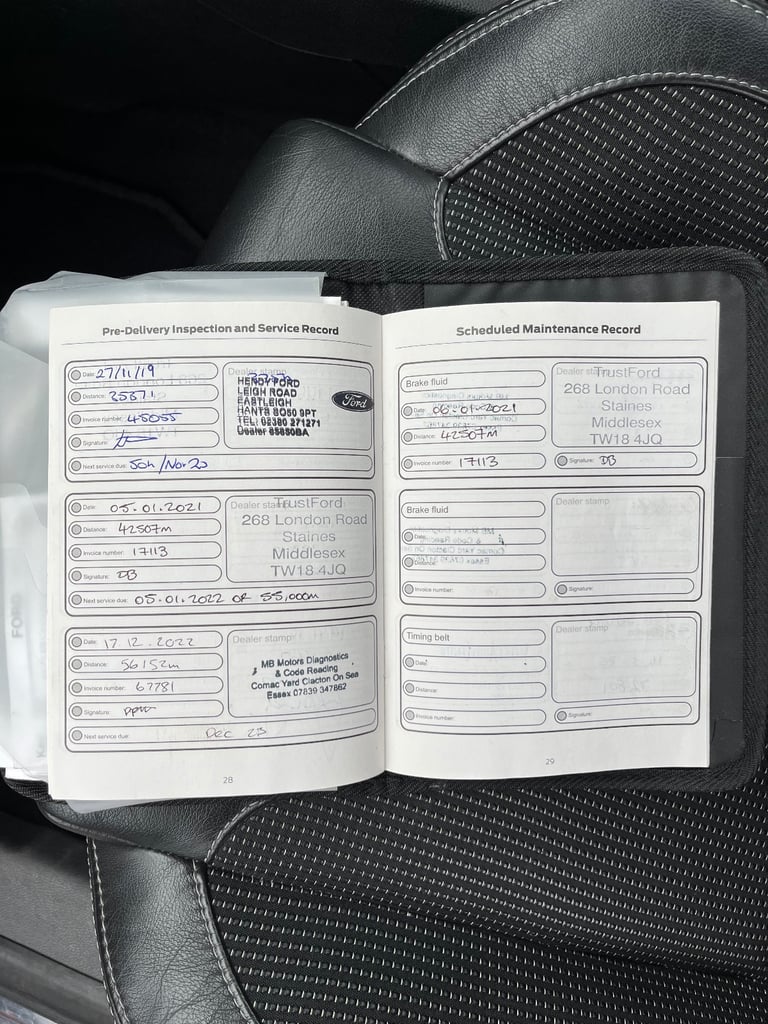 Pre-Delivery Inspection and Service Record
Date: 27/11/19
Distance: 25571
Invoice number: 45055
Signature:
Next service due: 50k/Nov 20
Dealer stamp
HENDY FORD
LEIGH ROAD
EASTLEIGH
HANTS SO50 9PT
TEL: 02380 271271
Dealer
Ford
Date: 05.01.2021
Distance: 42507m
Invoice number: 17113
Signature: DB
Next service due: 05.01.2022 OR 55,000m
Dealer stamp
TrustFord
268 London Road
Staines
Middlesex
TW18 4JQ
Date: 17.12.2022
Distance: 56152m
Invoice number: 67781
Signature:
Next service due: Dec 23
Dealer stamp
MB Motors Diagnostics
& Code Reading
Comac Yard Clacton On Sea
Essex 07839 347862
28
Scheduled Maintenance Record
Brake fluid
Date: 06-01-2021
Distance: 42507m
Invoice number: 17113
Dealer stamp
TrustFord
268 London Road
Staines
Middlesex
TW18 4JQ
Signature: DB
Brake fluid
Date:
Distance:
Invoice number:
Dealer stamp
Signature:
Timing belt
Date:
Distance:
Invoice number:
Dealer stamp
Signature:
29